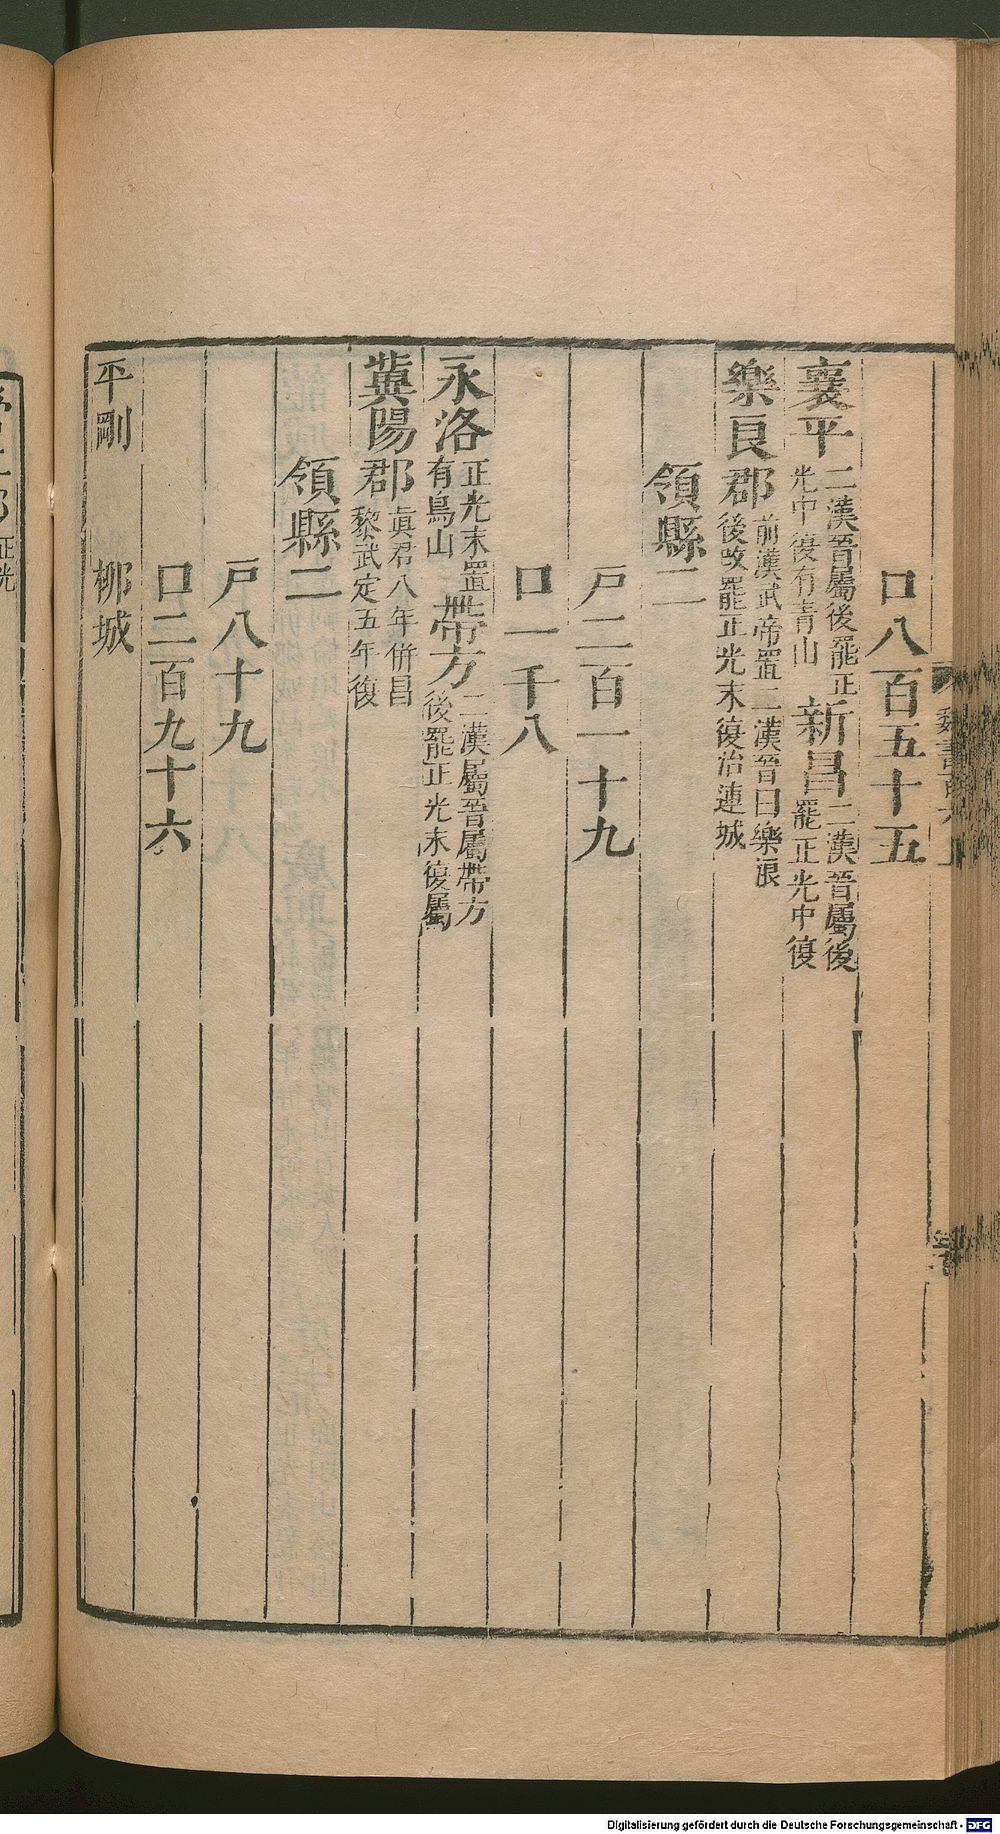 口八百五十五
襄平二漢晉屬後罷正光中復有青山 新昌二漢晉屬後罷正光中復
樂良郡前漢武帝置二漢晉曰樂浪後改罷正光末復治連城
領縣二
戸二百一十九
口一千八
永洛正光末置有鳥山 帶方二漢屬晉屬帶方後罷正光末復屬
冀陽郡眞君八年併昌黎武定五年復
領縣二
戸八十九
口二百九十六
平剛 柳城
Digitalisierung gefördert durch die Deutsche Forschungsgemeinschaft - DFG